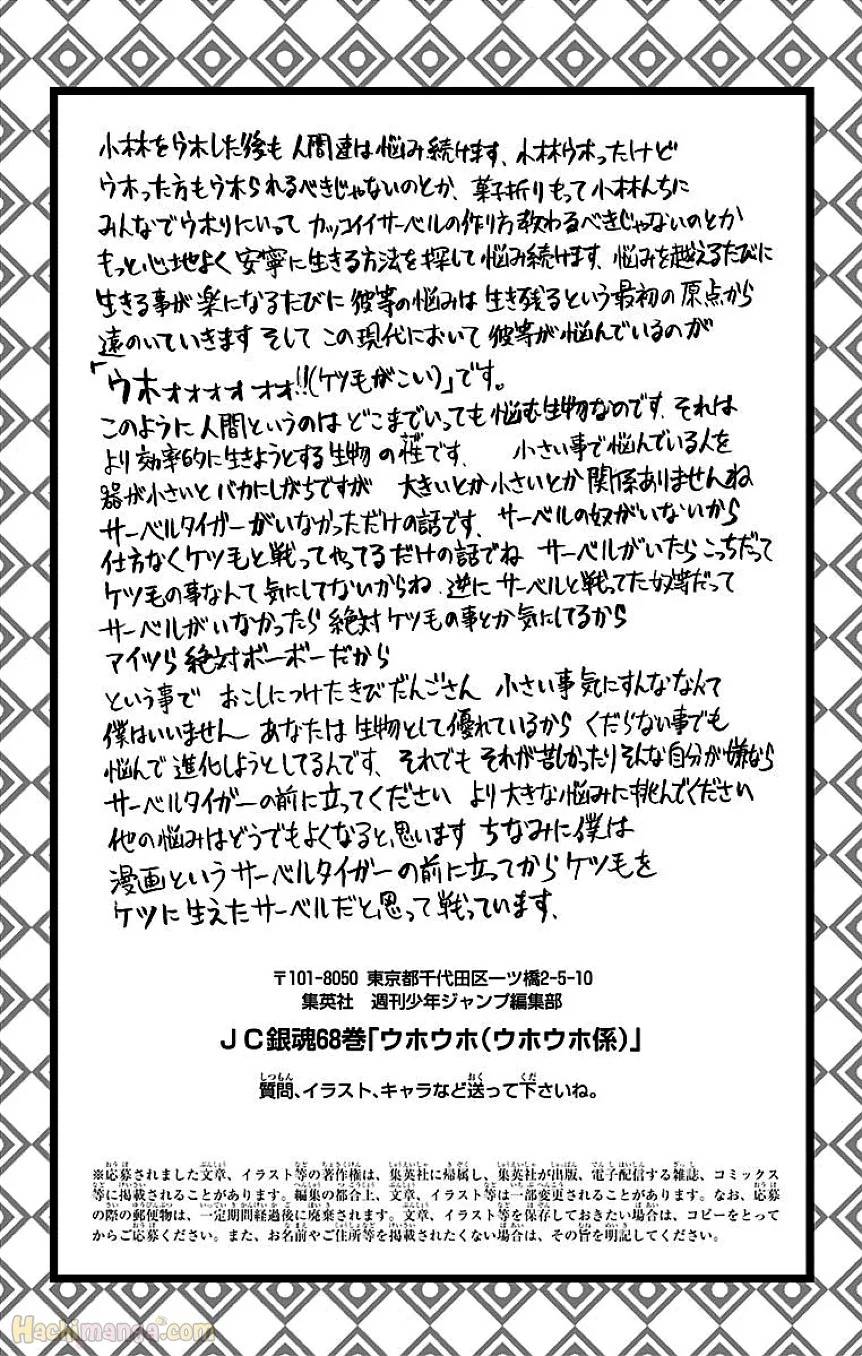 小林をウホした後も人間達は悩み続けます、小林ウホったけど
ウホった方もウホられるべきじゃないのとか、菓子折りもって小林んちに
みんなでウホりにいって カッコイイサーベルの作り方教わるべきじゃないのとか
もっと心地よく安寧に生きる方法を探して悩み続けます、悩みを越えるたびに
生きる事が楽になるたびに彼等の悩みは生き残るという最初の原点から
遠のいていきます そして この現代において彼等が悩んでいるのが
「ウホォォォォォォ!!(ケツ毛がこい)」です。
このように人間というのは どこまでいっても悩む生物なのです、それは
より効率的に生きようとする生物の性です、 小さい事で悩んでいる人を
器が小さいとバカにしがちですが 大きいとか小さいとか関係ありませんね
サーベルタイガーがいなかっただけの話です、サーベルの奴がいないから
仕方なくケツ毛と戦ってやってるだけの話でね サーベルがいたらこっちだって
ケツ毛の事なんて気にしてないからね、逆にサーベルと戦ってた奴等だって
サーベルがいなかったら絶対ケツ毛の事とか気にしてるから
アイツら絶対ボーボーだから
という事で おこしにつけたきびだんごさん 小さい事気にすんななんて
僕はいいません あなたは生物として優れているから くだらない事でも
悩んで進化しようとしてるんです、それでも それが苦しかったりそんな自分が嫌なら
サーベルタイガーの前に立ってください より大きな悩みに挑んでください
他の悩みはどうでもよくなると思います ちなみに僕は
漫画というサーベルタイガーの前に立ってからケツ毛を
ケツに生えたサーベルだと思って戦っています、
〒101-8050 東京都千代田区一ツ橋2-5-10
集英社 週刊少年ジャンプ編集部
JC銀魂68巻「ウホウホ(ウホウホ係)」
質問、イラスト、キャラなど送って下さいね。
※応募されました文章、イラスト等の著作権は、集英社に帰属し、集英社が出版、電子配信する雑誌、コミックス
等に掲載されることがあります。編集の都合上、文章、イラスト等は一部変更されることがあります。なお、応募
の際の郵便物は、一定期間経過後に廃棄されます。文章、イラスト等を保存しておきたい場合は、コピーをとって
からご応募ください。また、お名前やご住所等を掲載されたくない場合は、その旨を明記してください。
Hachimanga.com